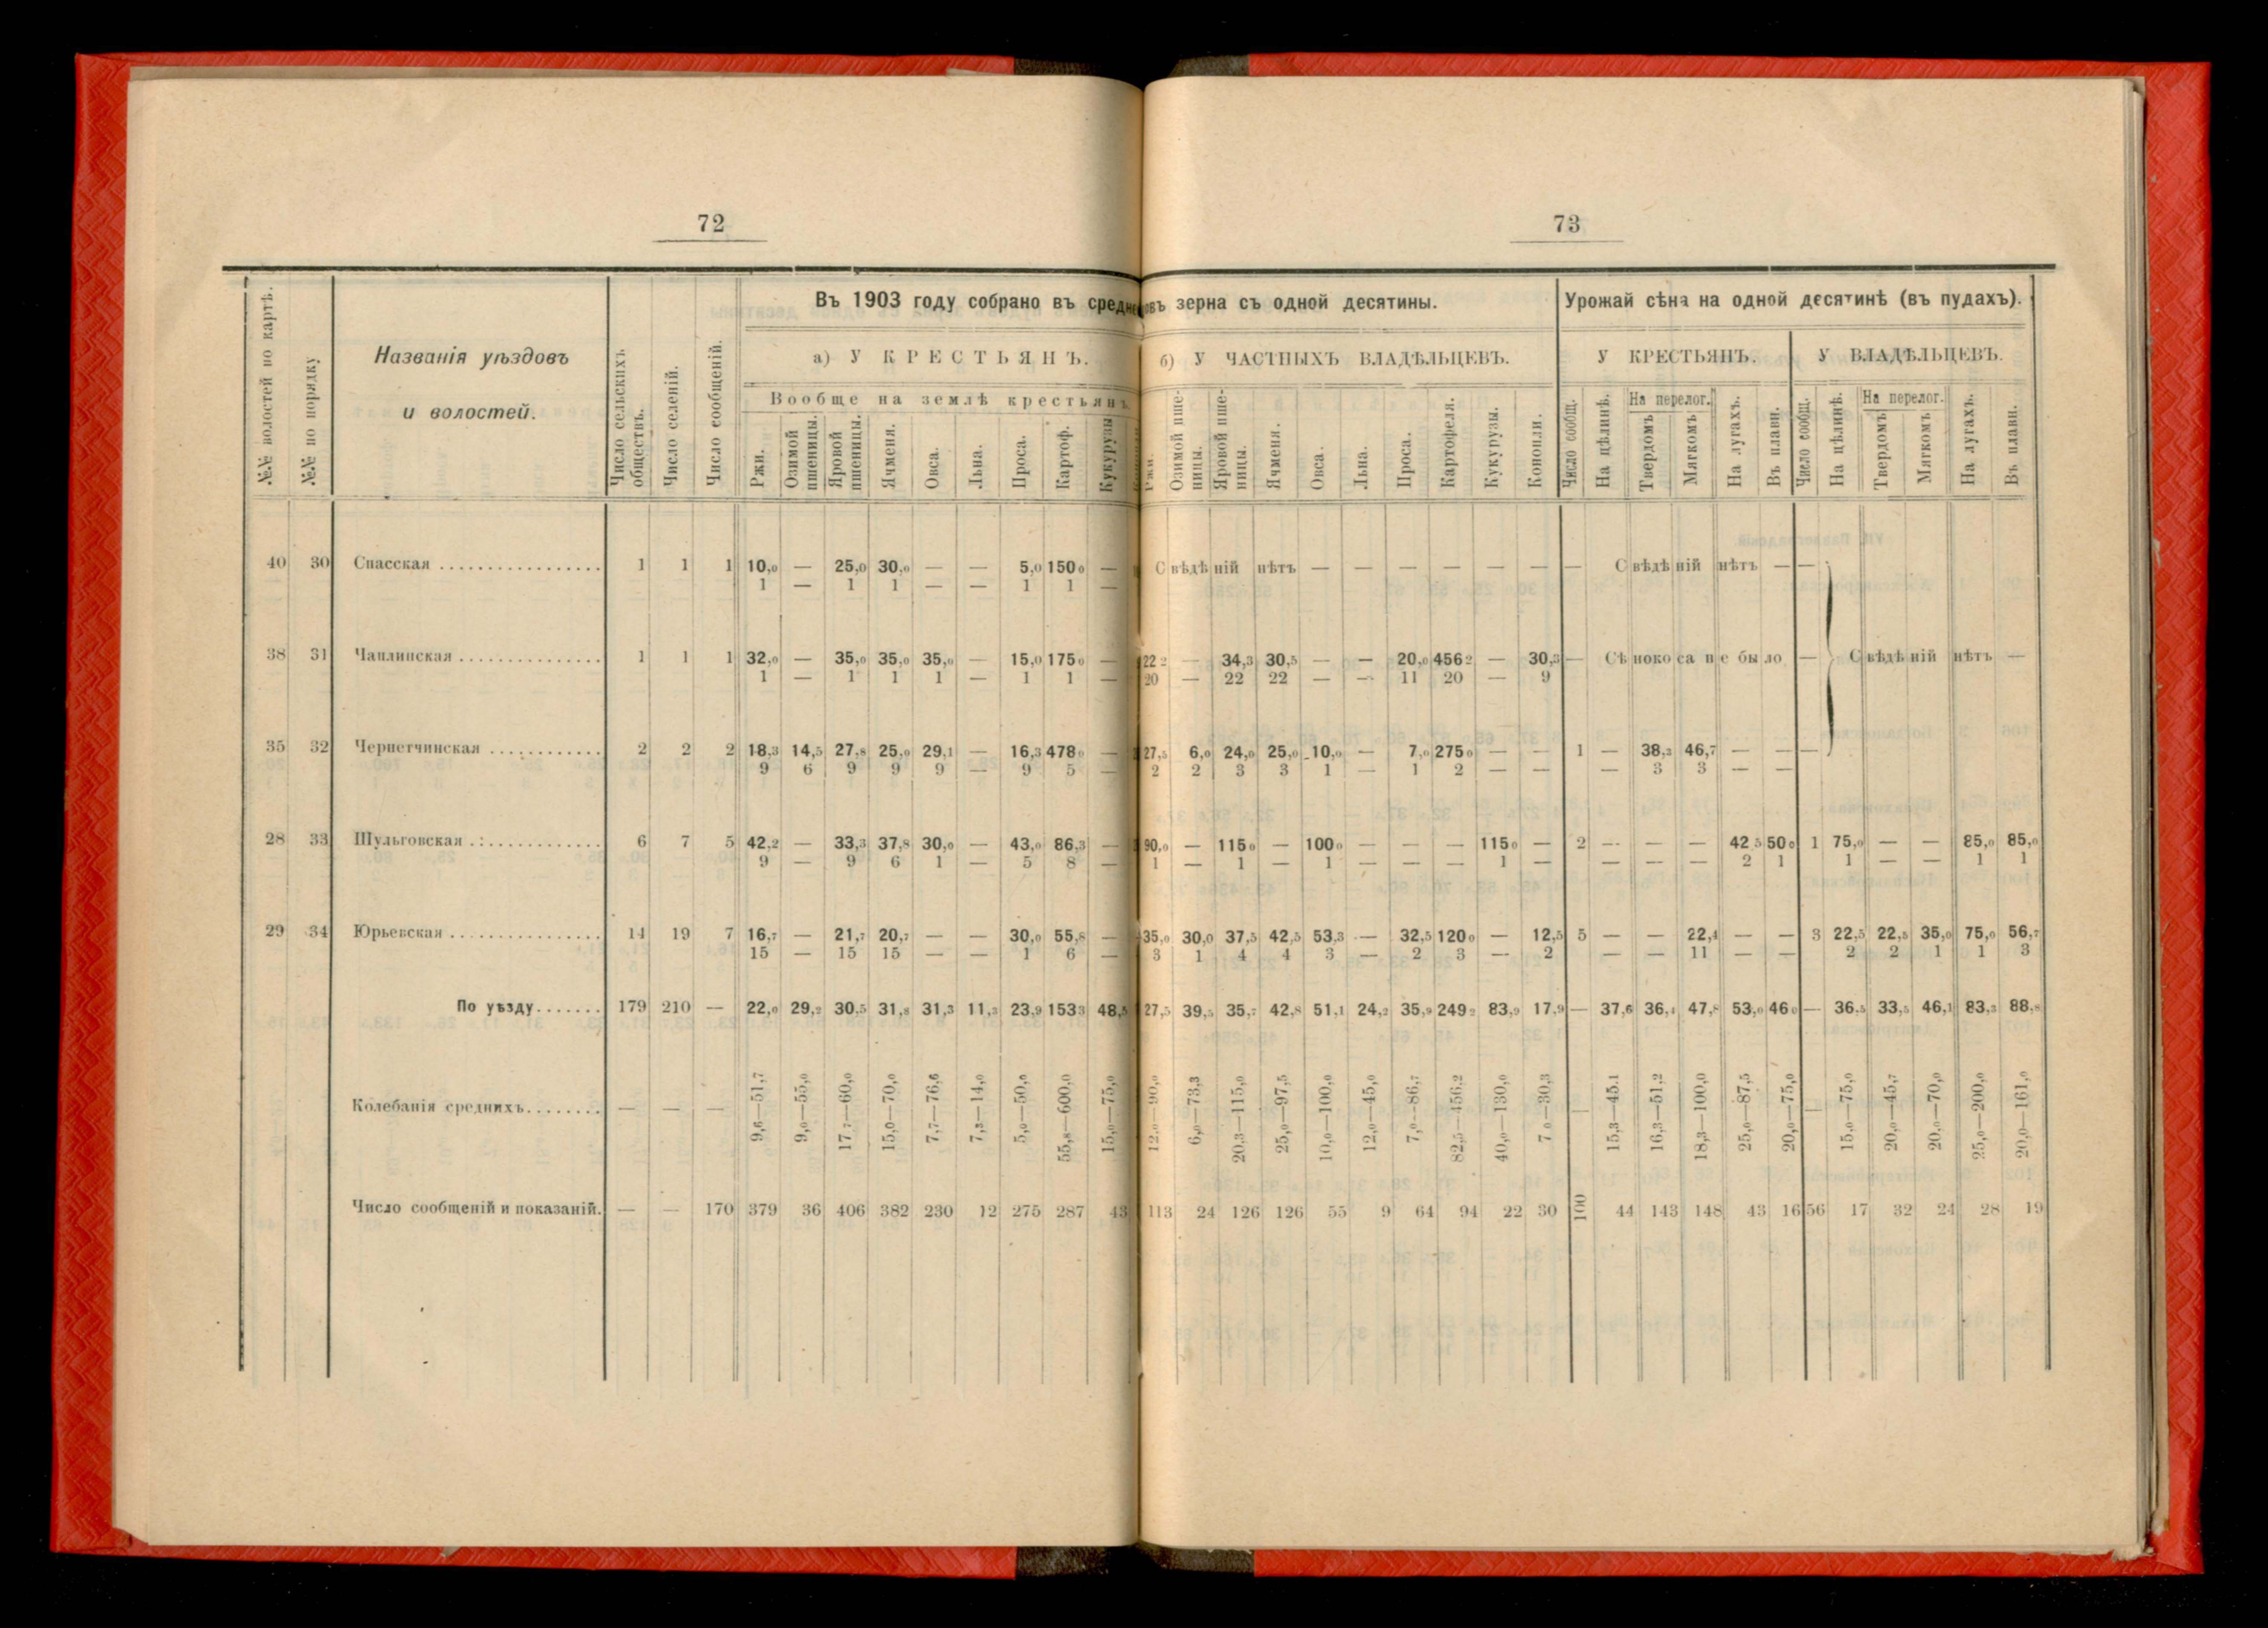 72
№№ волостей по картѣ.
№№ по порядку
Названія уѣздовъ
и волостей.
Число сельскихъ
обществъ.
Число селеній.
Число сообщеній.
Въ 1903 году собрано въ средне
а) У КРЕСТЬЯНЪ.
Вообще на землѣ крестьянъ.
Ржи.
Озимой
пшеницы.
Яровой
пшеницы.
Ячменя.
Овса.
Льна.
Проса.
Картоф.
Кукурузы
40 30 Спасская ................ 1 1 1 10,0 — 25,0 30,0 — — 5,0 150 0 —
1 — 1 1 — — 1 1 —
38 31 Чаплинская ............... 1 1 1 32,0 — 35,0 35,0 35,0 — 15,0 175 0 —
1 — 1 1 1 — 1 1 —
35 32 Чернетчинская ............ 2 2 2 18,3 14,5 27,8 25,0 29,1 — 16,3 478 0 —
9 6 9 9 9 — 9 5 —
28 33 Шульговская .:............ 6 7 5 42,2 — 33,3 37,8 30,0 — 43,0 86,3 —
9 — 9 6 1 — 5 8 —
29 34 Юрьевская ................ 14 19 7 16,7 — 21,7 20,7 — — 30,0 55,8 —
15 — 15 15 — — 1 6 —
По уѣзду....... 179 210 — 22,0 29,2 30,5 31,8 31,3 11,3 23,9 153 3 48,5
Колебанія среднихъ........ — — — 9,6—51,7 9,0—55,0 17,7—60,0 15,0—70,0 7,7—76,6 7,3—14,0 5,0—50,0 55,8—600,0 15,0—75,0
Число сообщеній и показаній. — — 170 379 36 406 382 230 12 275 287 43
73
овъ зерна съ одной десятины.
б) У ЧАСТНЫХЪ ВЛАДѢЛЬЦЕВЪ.
Ржи.
Озимой пше-
ницы.
Яровой пше-
ницы.
Ячменя.
Овса.
Льна.
Проса.
Картофеля.
Кукурузы.
Конопли.
Урожай сѣна на одной десятинѣ (въ пудахъ).
У КРЕСТЬЯНЪ.
Число сообщ.
На цѣлинѣ.
На перелог.
Твердомъ
Мягкомъ
На лугахъ.
Въ плавн.
У ВЛАДѢЛЬЦЕВЪ.
Число сообщ.
На цѣлинѣ.
На перелог.
Твердомъ
Мягкомъ
На лугахъ.
Въ плавн.
Свѣдѣній нѣтъ — — — — — — — Свѣдѣній нѣтъ — —
22 2 — 34,3 30,5 — — 20,0 456 2 — 30,3 — Сѣнокоса не было — Свѣдѣній нѣтъ —
20 — 22 22 — — 11 20 — 9
27,5 6,0 24,0 25,0 10,0 — 7,0 275 0 — — 1 — 38,3 46,7 — — —
2 2 3 3 1 — 1 2 — — — 3 3 — —
90,0 — 115 0 — 100 0 — — — 115 0 — 2 — — — 42 5 50 0 1 75,0 — — 85,0 85,0
1 — 1 — 1 — — — 1 — — — — 2 1 1 — — 1 1
35,0 30,0 37,5 42,5 53,3 — 32,5 120 0 — 12,5 5 — — 22,4 — — 3 22,5 22,5 35,0 75,0 56,7
3 1 4 4 3 — 2 3 — 2 — — 11 — — 2 2 1 1 3
27,5 39,5 35,7 42,8 51,1 24,2 35,9 249 2 83,9 17,9 — 37,6 36,4 47,8 53,0 46 0 — 36,5 33,5 46,1 83,3 88,8
12,0—90,0 6,0—73,3 20,3—115,0 25,0—97,5 10,0—100,0 12,0—45,0 7,0—86,7 82,5—456,2 40,0—130,0 7 0—30,3 — 15,3—45.1 16,3—51,2 18,3—100,0 25,0—87,5 20,0—75,0 — 15,0—75,0 20,0—45,7 20,0—70,0 25,0—200,0 20,0—161,0
113 24 126 126 55 9 64 94 22 30 100 44 143 148 43 16 56 17 32 24 28 19